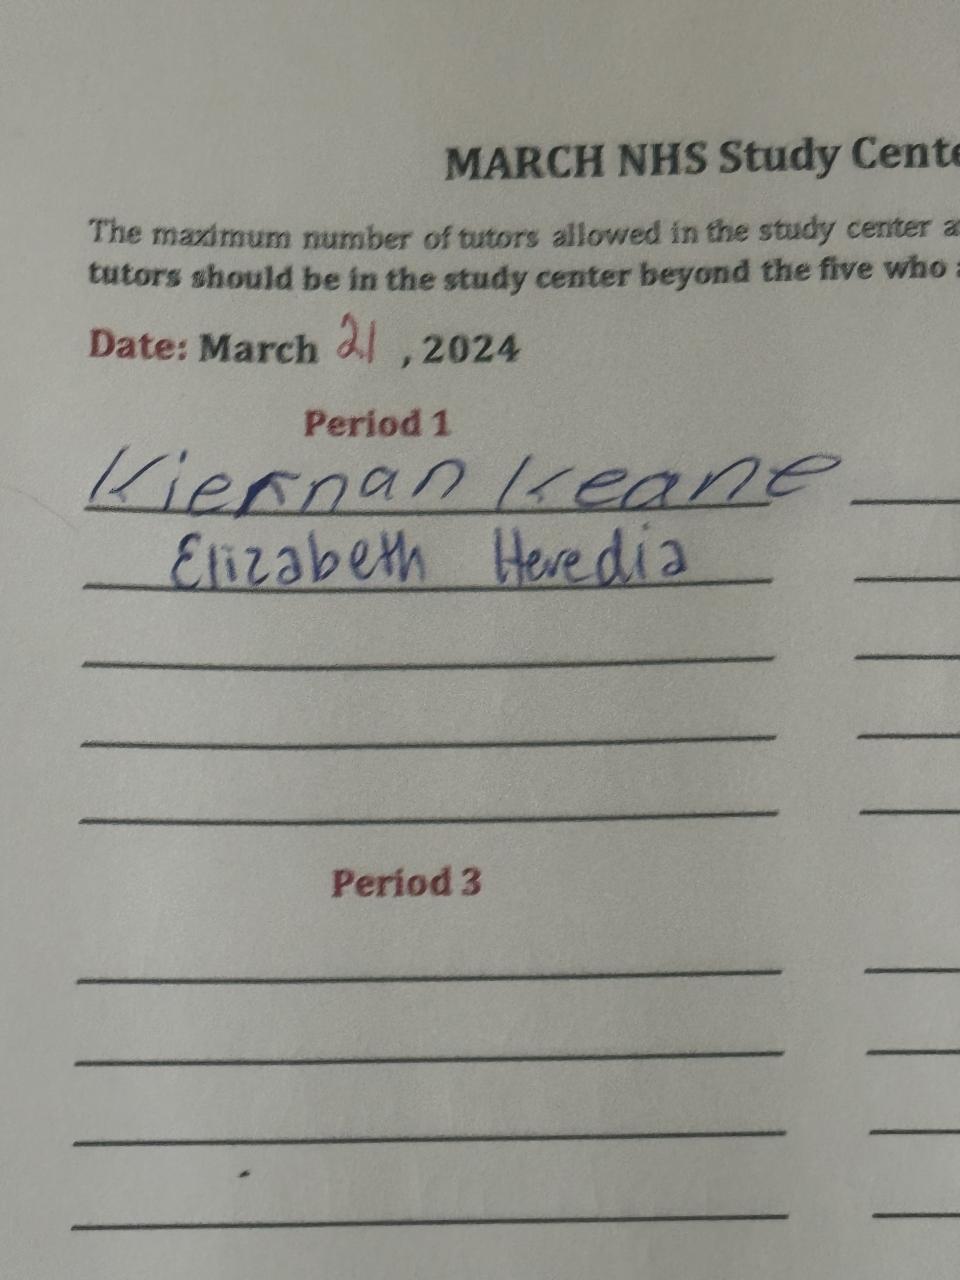 MARCH NHS Study Cente
The maximum number of tutors allowed in the study center a
tutors should be in the study center beyond the five who a
Date: March 21, 2024
Period 1
Kiernan Keane
Elizabeth Heredia
Period 3